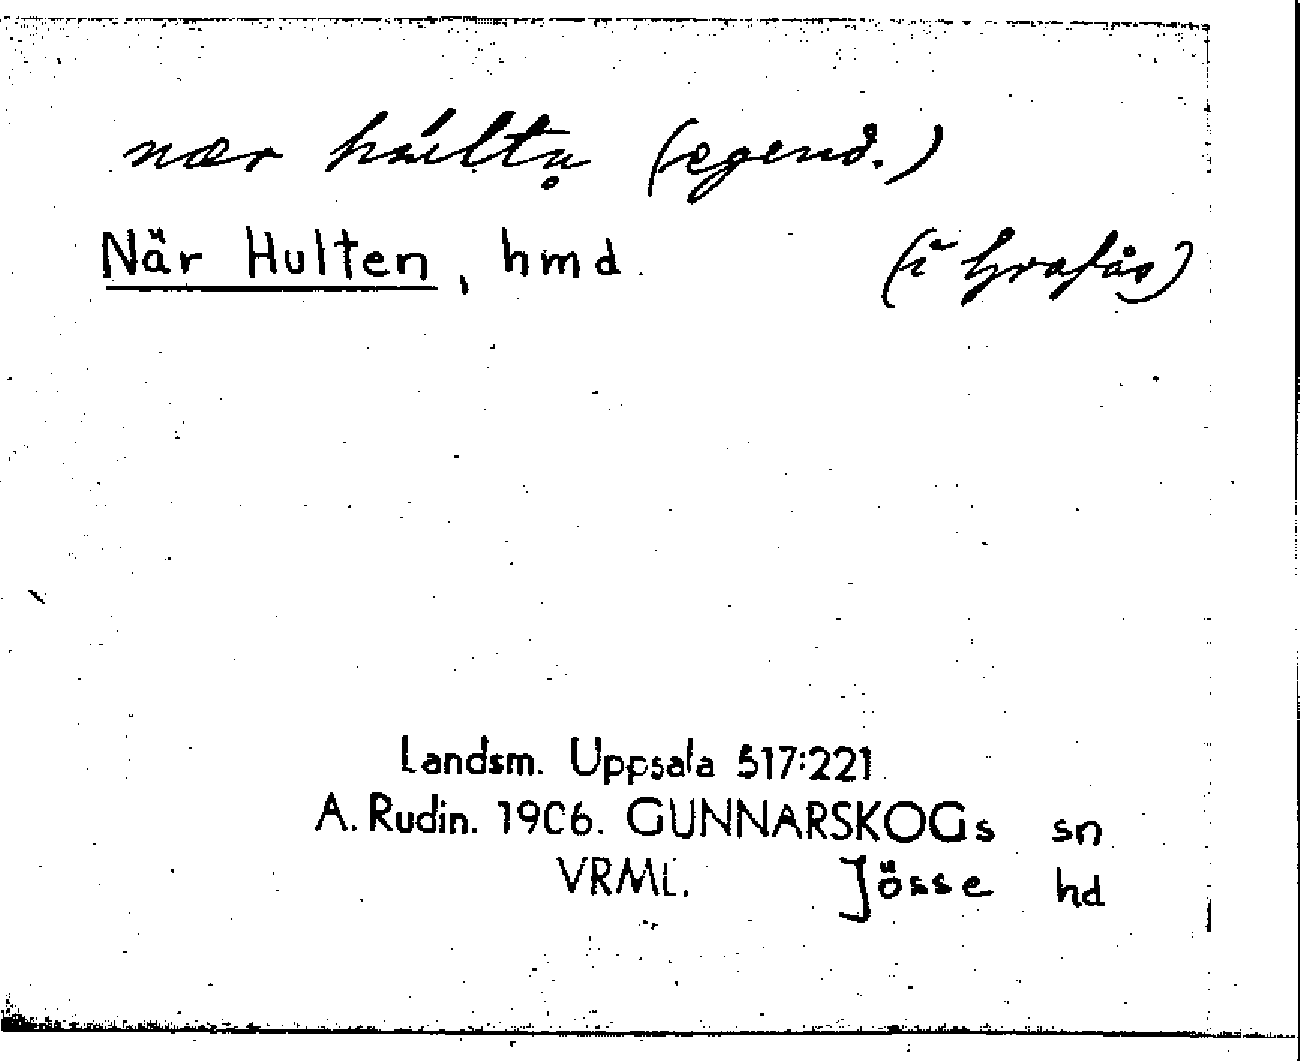 nær húltn̥ (egend.)
När Hulten, hmd. (i Grafås)
Landsm. Uppsala 517:221
A. Rudin. 1906. GUNNARSKOGs sn
VRML. Jösse hd